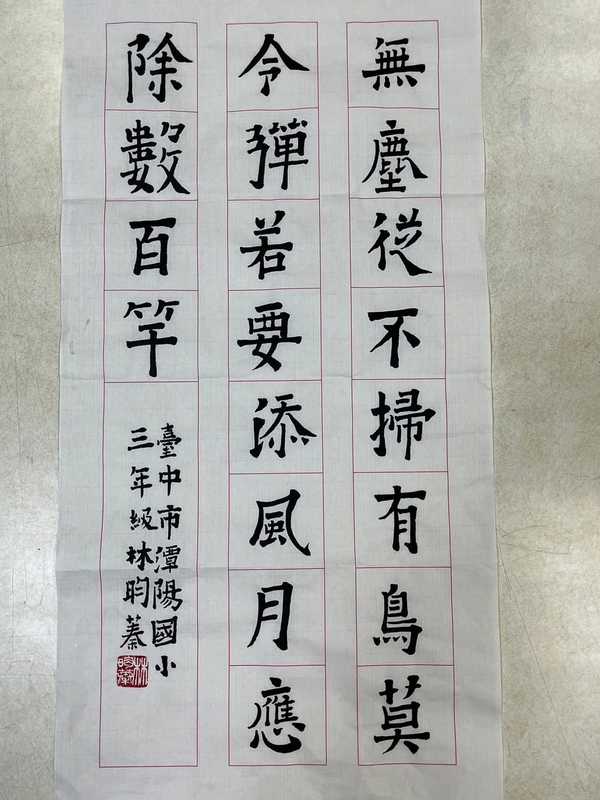 無塵從不掃有鳥莫
令彈若要添風月應
除數百竿
臺中市潭陽國小
三年級林昀蓁
林昀蓁